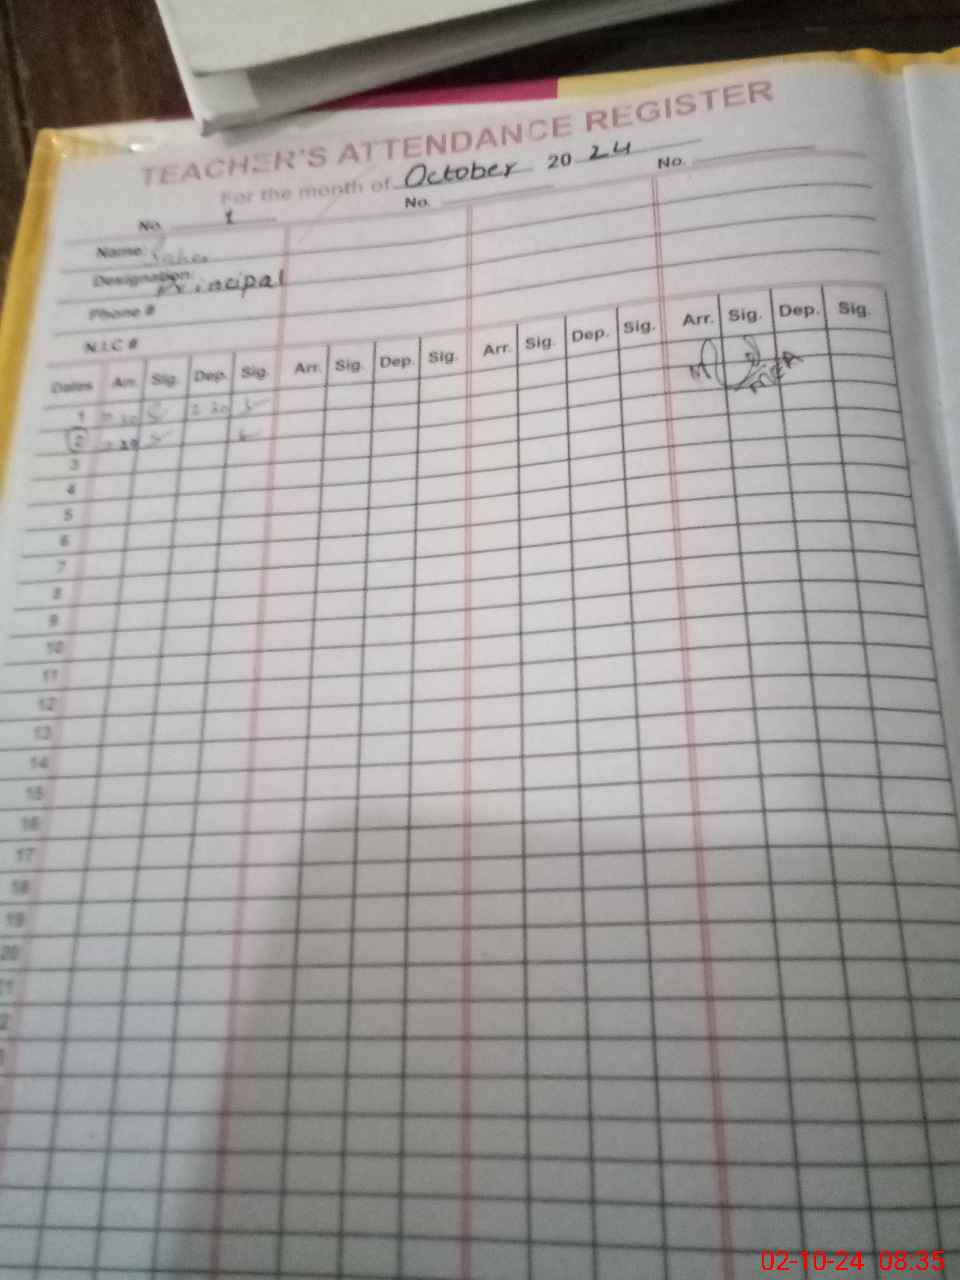 TEACHER'S ATTENDANCE REGISTER
For the month of October 20 24
No. 1 No. No.
Name:
Designation: Principal
Phone #
N.I.C #
Dates Arr. Sig. Dep. Sig. Arr. Sig. Dep. Sig. Arr. Sig. Dep. Sig. Arr. Sig. Dep. Sig.
1
2
3
4
5
6
7
8
9
10
11
12
13
14
15
16
17
18
19
20
02-10-24 08:35